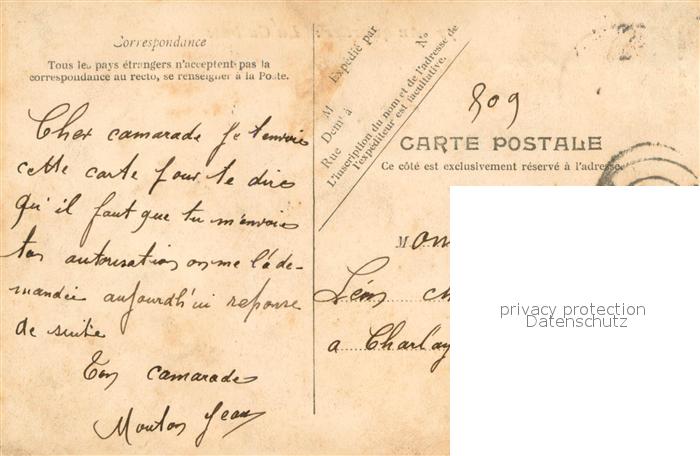 Correspondance
Tous les pays étrangers n'acceptent pas la
correspondance au recto, se renseigner à la Poste.
Cher camarade je t'envoie
cette carte pour te dire
qu'il faut que tu m'envoies
ton autorisation on me l'a de-
mandée aujourd'hui reponse
de suite
Ton camarade
Mouton Jean
Expédié par
M
Demt à
Rue
No
L'inscription du nom et de l'adresse de
l'expéditeur est facultative.
809
CARTE POSTALE
Ce côté est exclusivement réservé à l'adresse.
Mon
Léon
a Charlay
privacy protection
Datenschutz